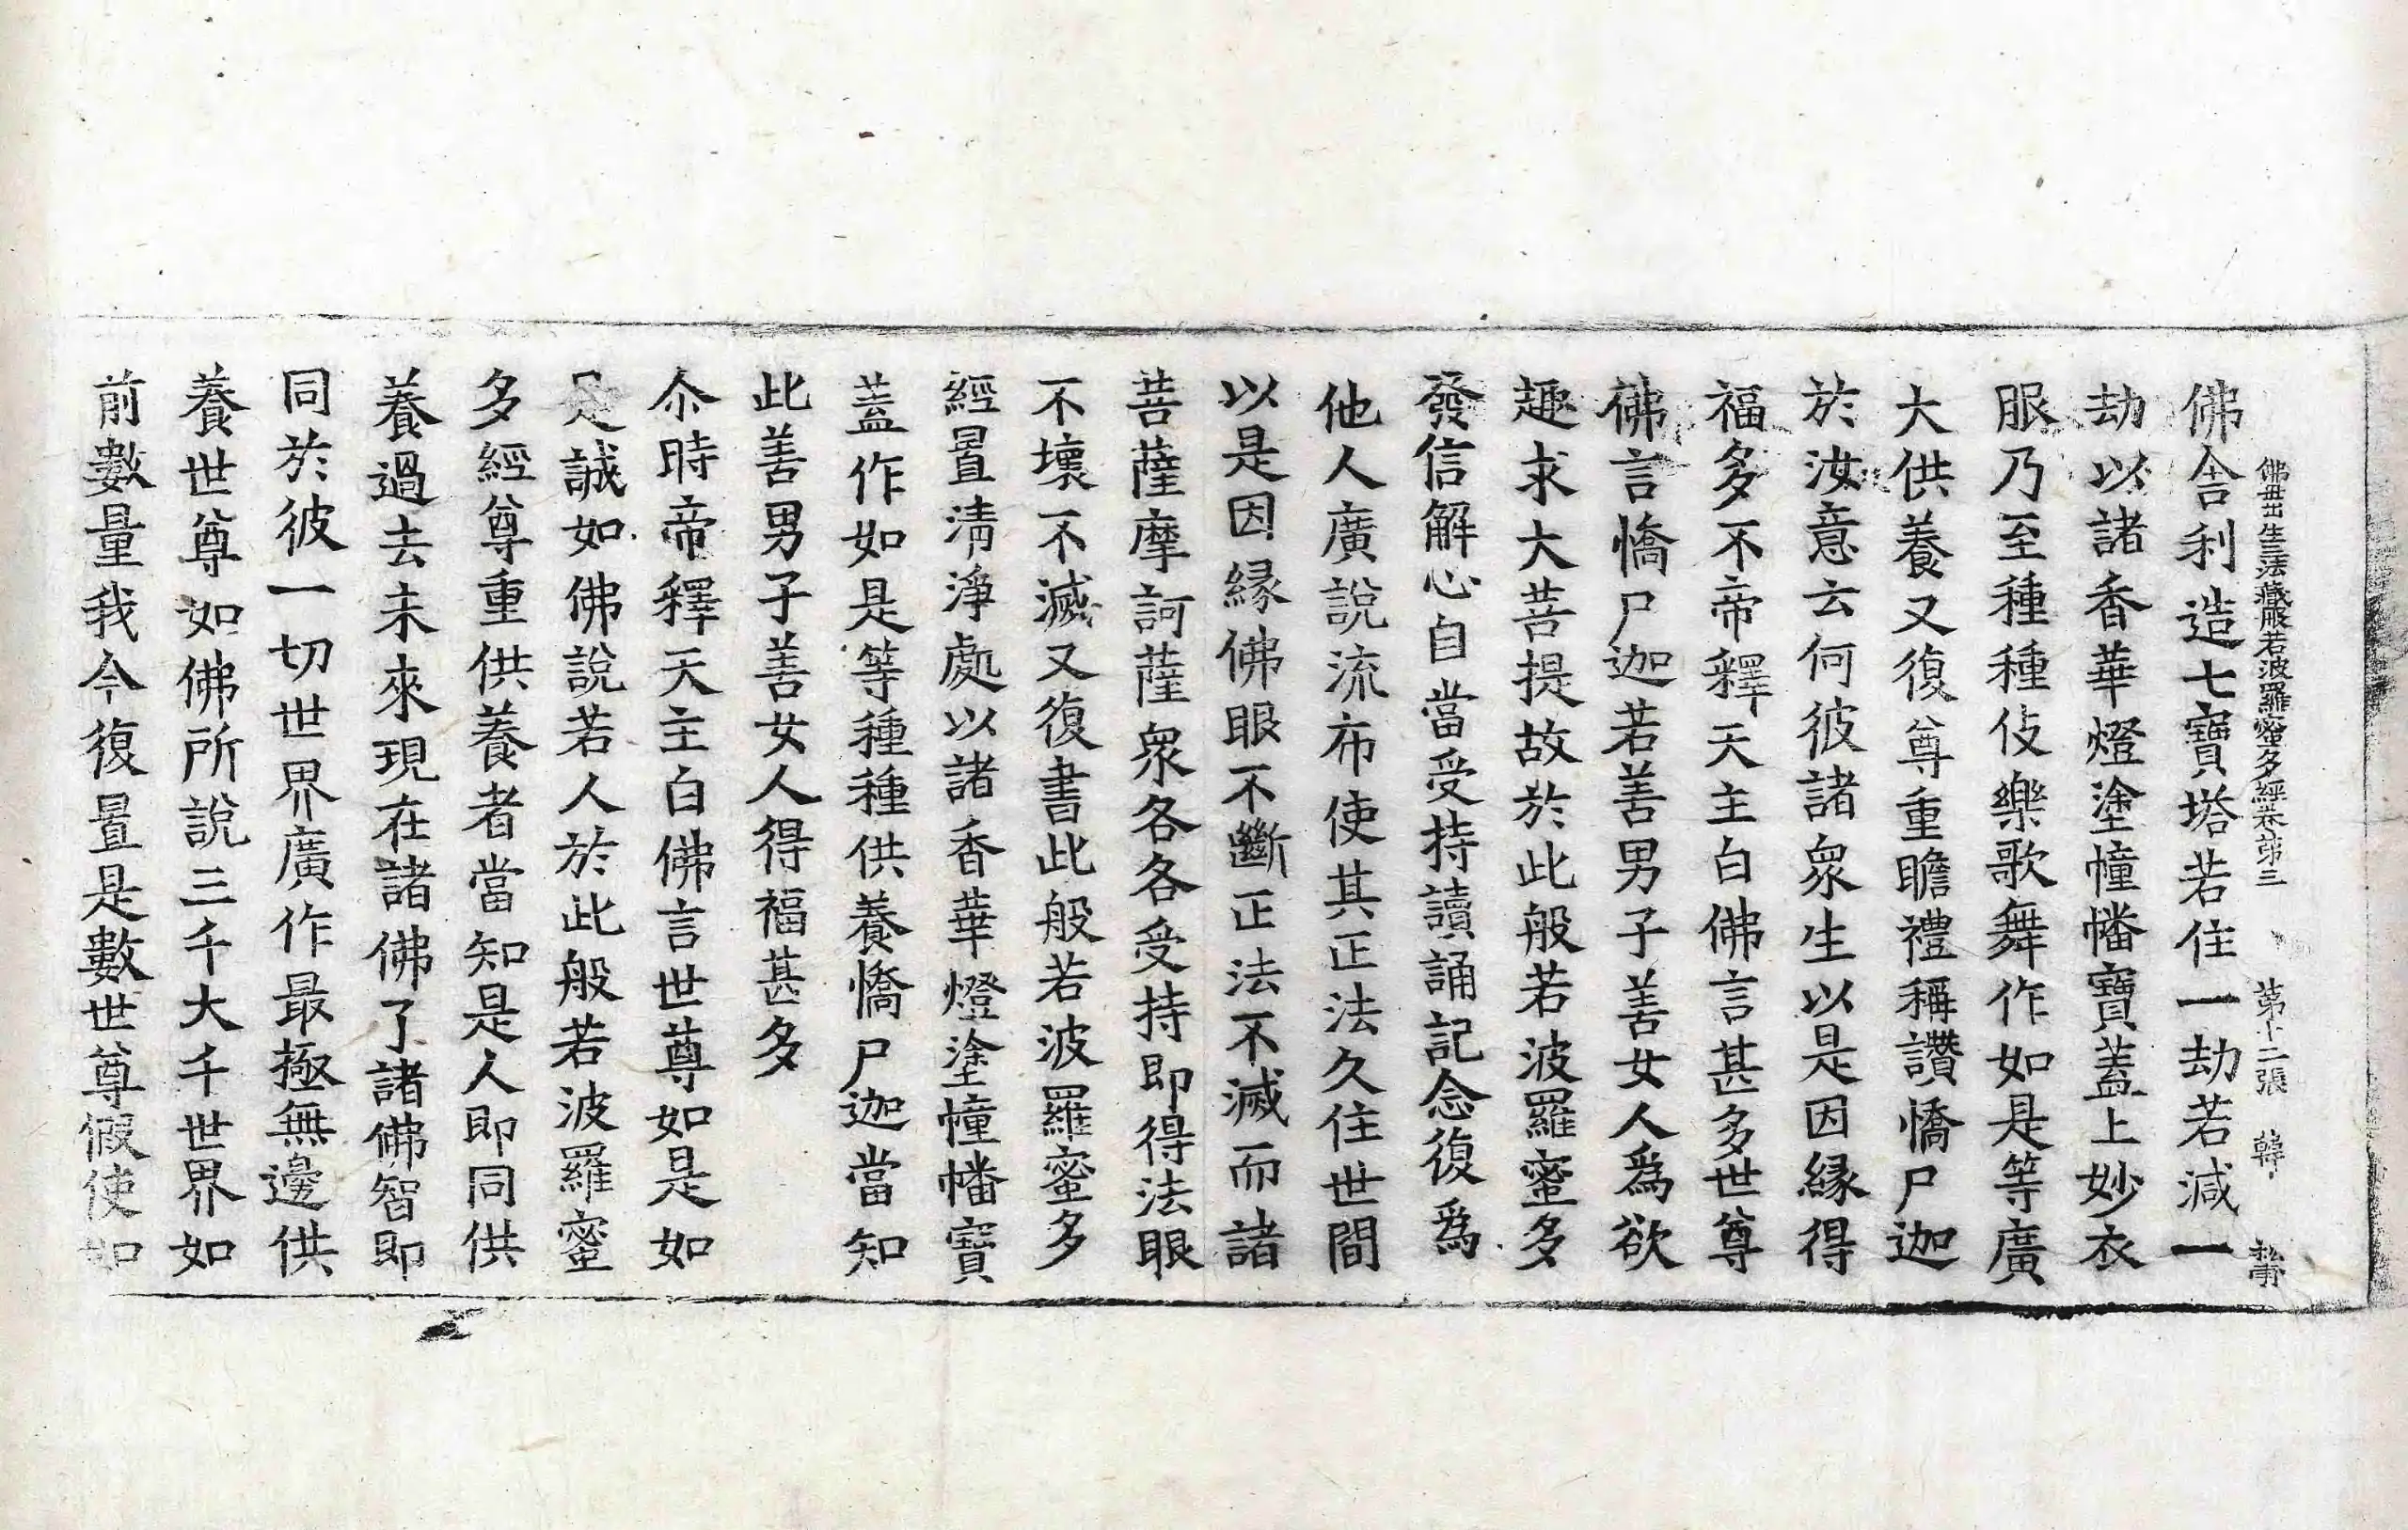 佛母出生三法藏般若波羅蜜多經卷第三 第十二張 韓
佛舍利造七寶塔若住一劫若減一
劫以諸香華燈塗幢幡寶蓋上妙衣
服乃至種種伎樂歌舞作如是等廣
大供養又復尊重瞻禮稱讚憍尸迦
於汝意云何彼諸衆生以是因緣得
福多不帝釋天主白佛言甚多世尊
佛言憍尸迦若善男子善女人爲欲
趣求大菩提故於此般若波羅蜜多
發信解心自當受持讀誦記念復爲
他人廣說流布使其正法久住世間
以是因緣佛眼不斷正法不滅而諸
菩薩摩訶薩衆各各受持即得法眼
不壞不滅又復書此般若波羅蜜多
經置清淨處以諸香華燈塗幢幡寶
蓋作如是等種種供養憍尸迦當知
此善男子善女人得福甚多
尒時帝釋天主白佛言世尊如是如
是誠如佛說若人於此般若波羅蜜
多經尊重供養者當知是人即同供
養過去未來現在諸佛了諸佛智即
同於彼一切世界廣作最極無邊供
養世尊如佛所說三千大千世界如
前數量我今復置是數世尊假使如